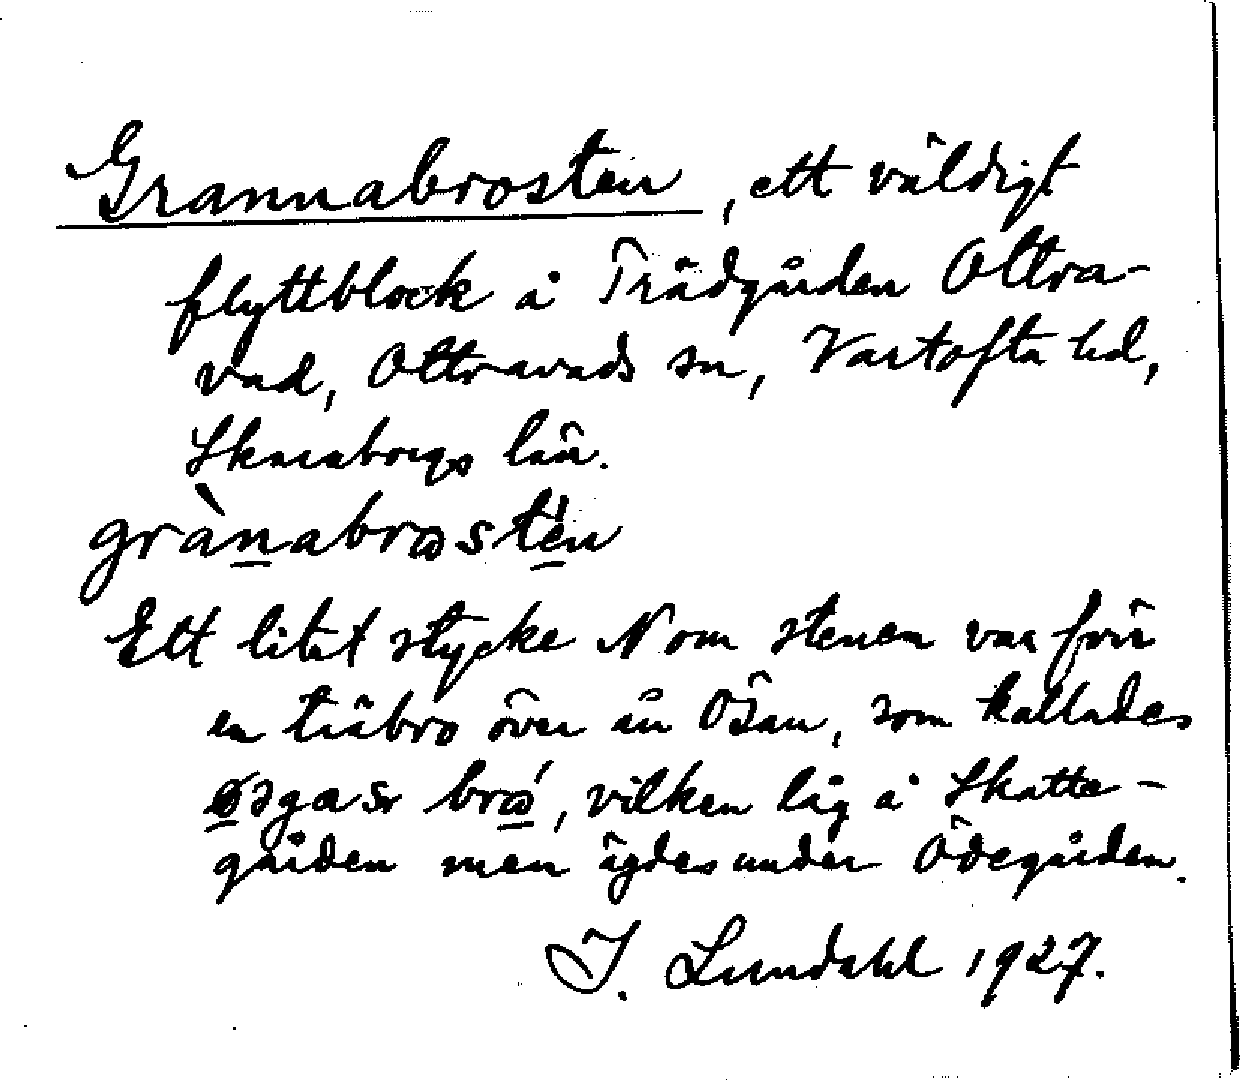 Grannabrosten, ett väldigt
flyttblock å Trädgården Ottra-
vad, Ottravads sn, Vartofta hd,
Skaraborgs län.
grànabrωstén
Ett litet stycke N om stenen var förr
en träbro över ån Ösan, som kallades
brώ, vilken låg å Skatte-
gården men ägdes under Ödegården.
I. Lundahl 1927.